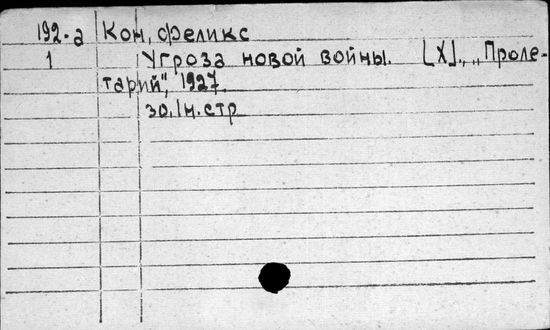 192-а Кон, Феликс
1 Угроза новой войны. [Х]., „Проле-
тарий", 1927.
30,1н.стр